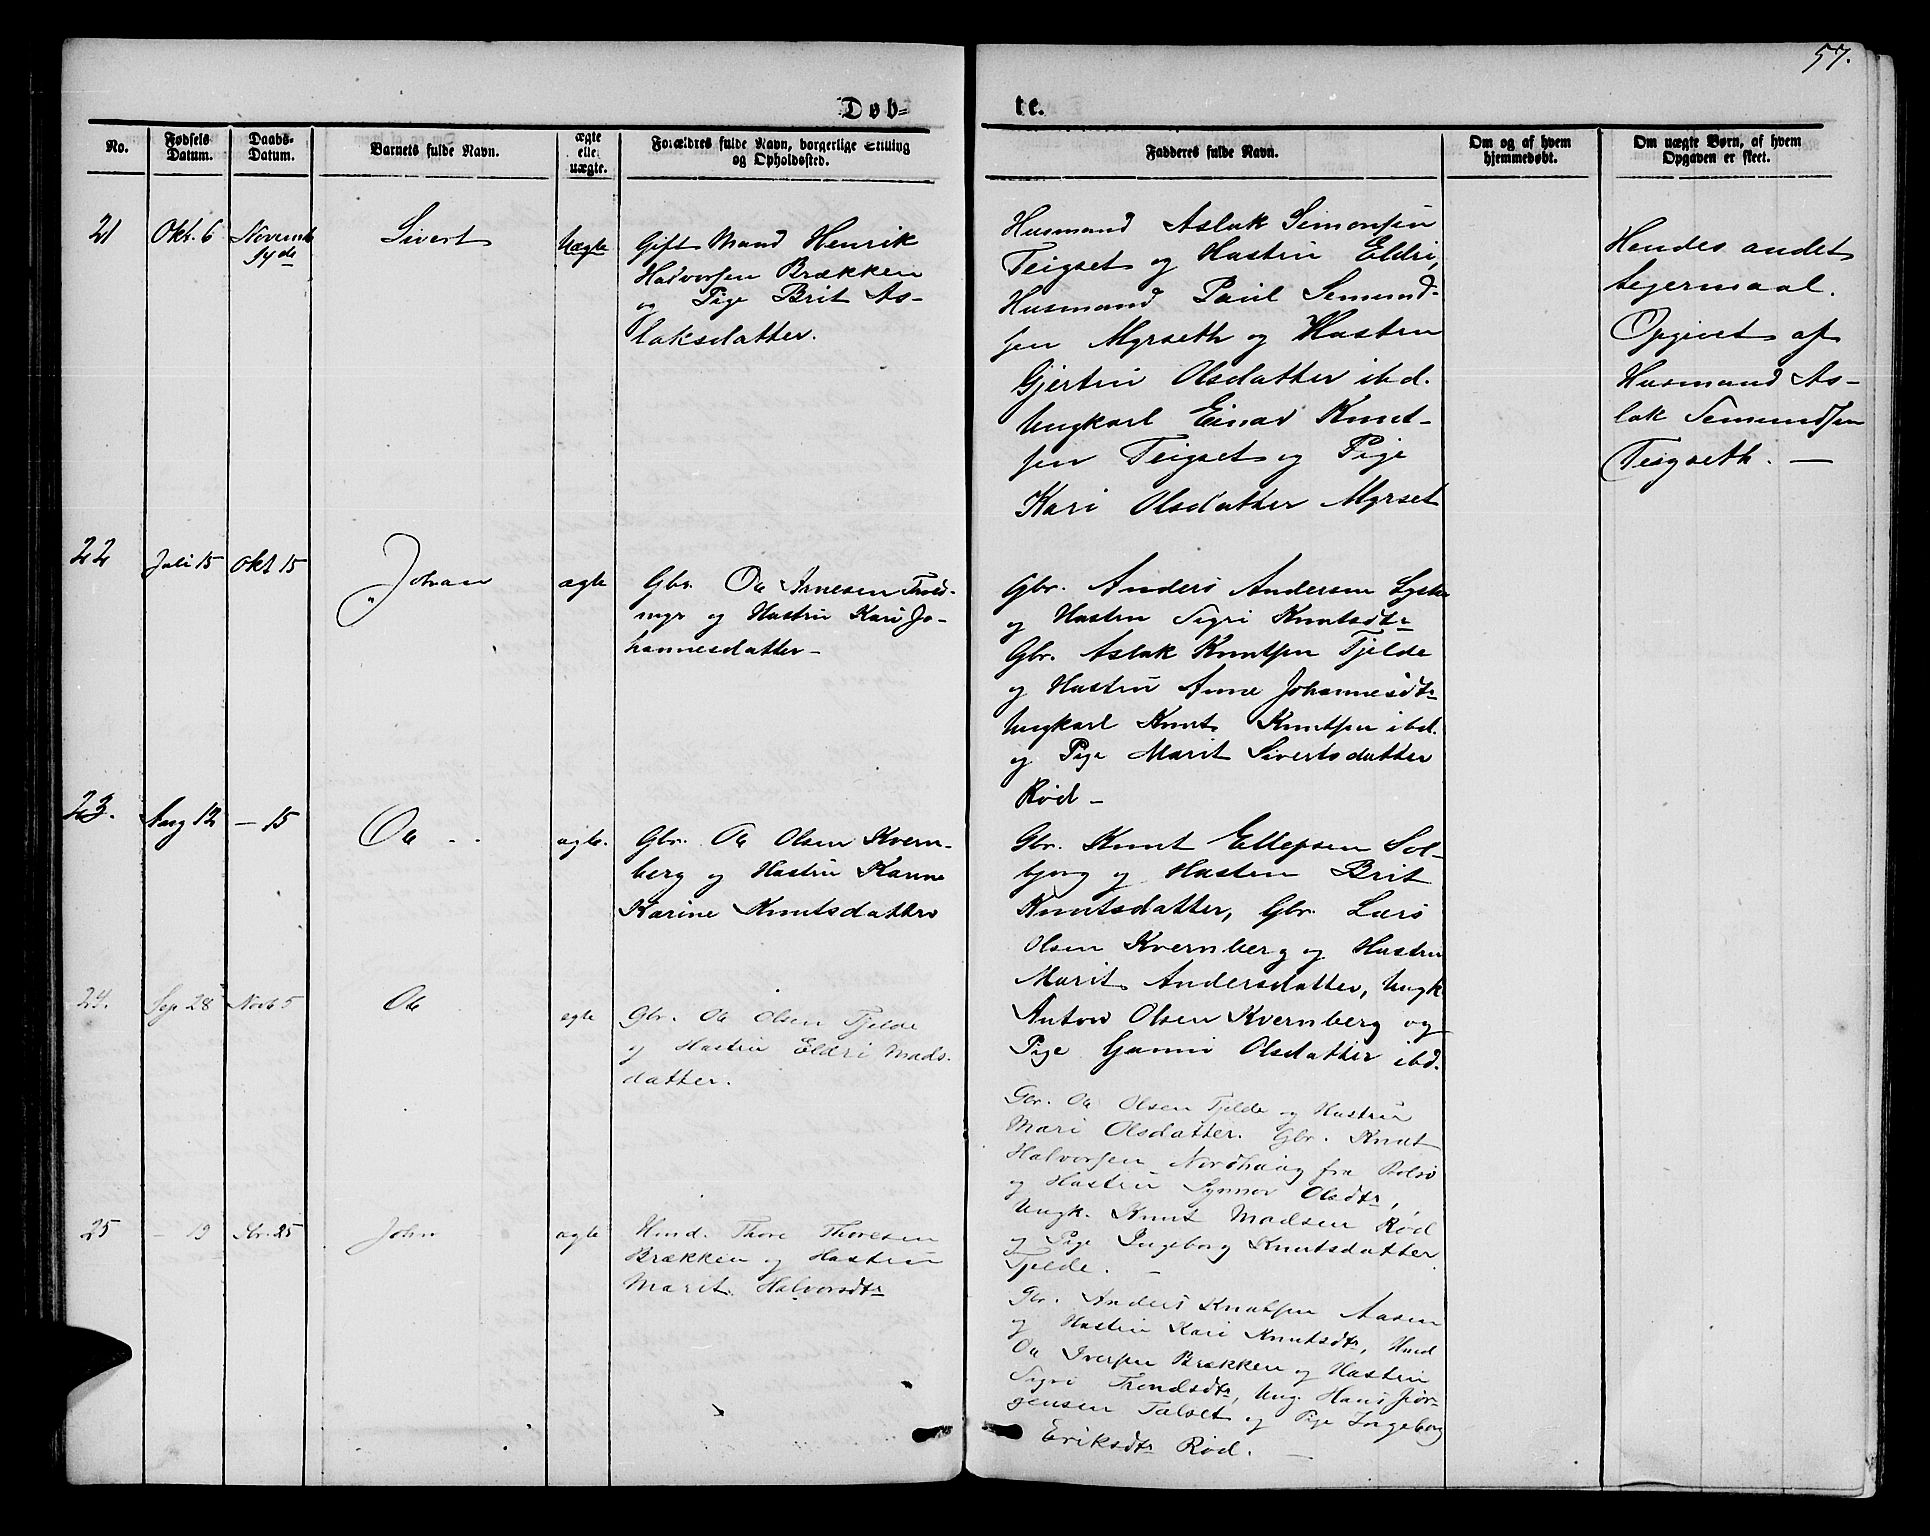 57.
Døb-
te.
No.
Fødsels
Datum.
Daabs-
Datum.
Barnets fulde Navn.
ægte
elle
uægte.
Forældres fulde Navn, borgerlige Stilling
og Opholdssted.
Fadderes fulde Navn.
Om og af hvem
hjemmedøbt.
Om uægte Børn, af hvem
Opgaven er skeet.
21
Okt. 6
Novemb
Sivert
Uægte
Gift Mand Henrik
Halvorsen Brækken
og Pige Brit As-
laksdatter.
Husmand Aslak Simonsen
Teigset og Hustru Eldri,
Husmand Paul Semund-
sen Myrseth og Hustru
Gjertru Olsdatter ibd.
Ungkarl Einar Knud-
sen Teigset og Pige
Kari Olsdatter Myrset
Hendes andet
Leiermaal.
Opgivet af
Husmand As-
lak Semundsen
Teigseth. —
22
Juli 15
Okt 15
Johan
ægte
Gbr. Ole Arnesen Trold-
myr og Hustru Kari Jo-
hannesdatter —
Gbr. Anders Andersen
og Hustru Sigri Knutsdtr
Gbr. Aslak Knutsen Tjelde
og Hustru Anne Johannesdtr
Ungkarl Knut Knutsen ibd.
og Pige Marit Sivertsdatter
Rød —
23.
Aug 12
— 15
Ole
ægte.
Gbr. Ole Olsen Kvern-
berg og Hustru Karine Knutsdatter
Gbr. Knut Ellefsen Sol-
bjørg og Hustru Brit
Knutsdatter, Gbr. Lars
Olsen Kvernberg og Hustru
Marit Andersdatter, Ungk
Anton Olsen Kvernberg og
Pige Olsdatter ibd.
24.
Sep 28
Novb 5
Ole
ægte
Gbr. Ole Olsen Tjelde
og Hustru Eldri Mads-
datter.
Gbr. Ole Olsen Tjelde og Hustru
Mari Olsdatter. Gbr. Knut
Halvorsen Nordhaug fra Bolsø
og Hustru Synnøv Olsdtr,
Ungk. Knut Madsen Rød
og Pige Ingeborg Knutsdatter
Tjelde. —
25
— 19
25
John
ægte
Hmd. Thore Thoresen
Brækken og Hustru
Marit Halvorsdtr
Gbr. Anders Knutsen Aasen
og Hustru Kari Knutsdtr, Hmd
Ole Iversen Brækken og Hustru
Sigri Trondsdtr, Ung. Hans Jør-
gensen Talset og Pige Ingeborg
Eriksdtr Rød. —